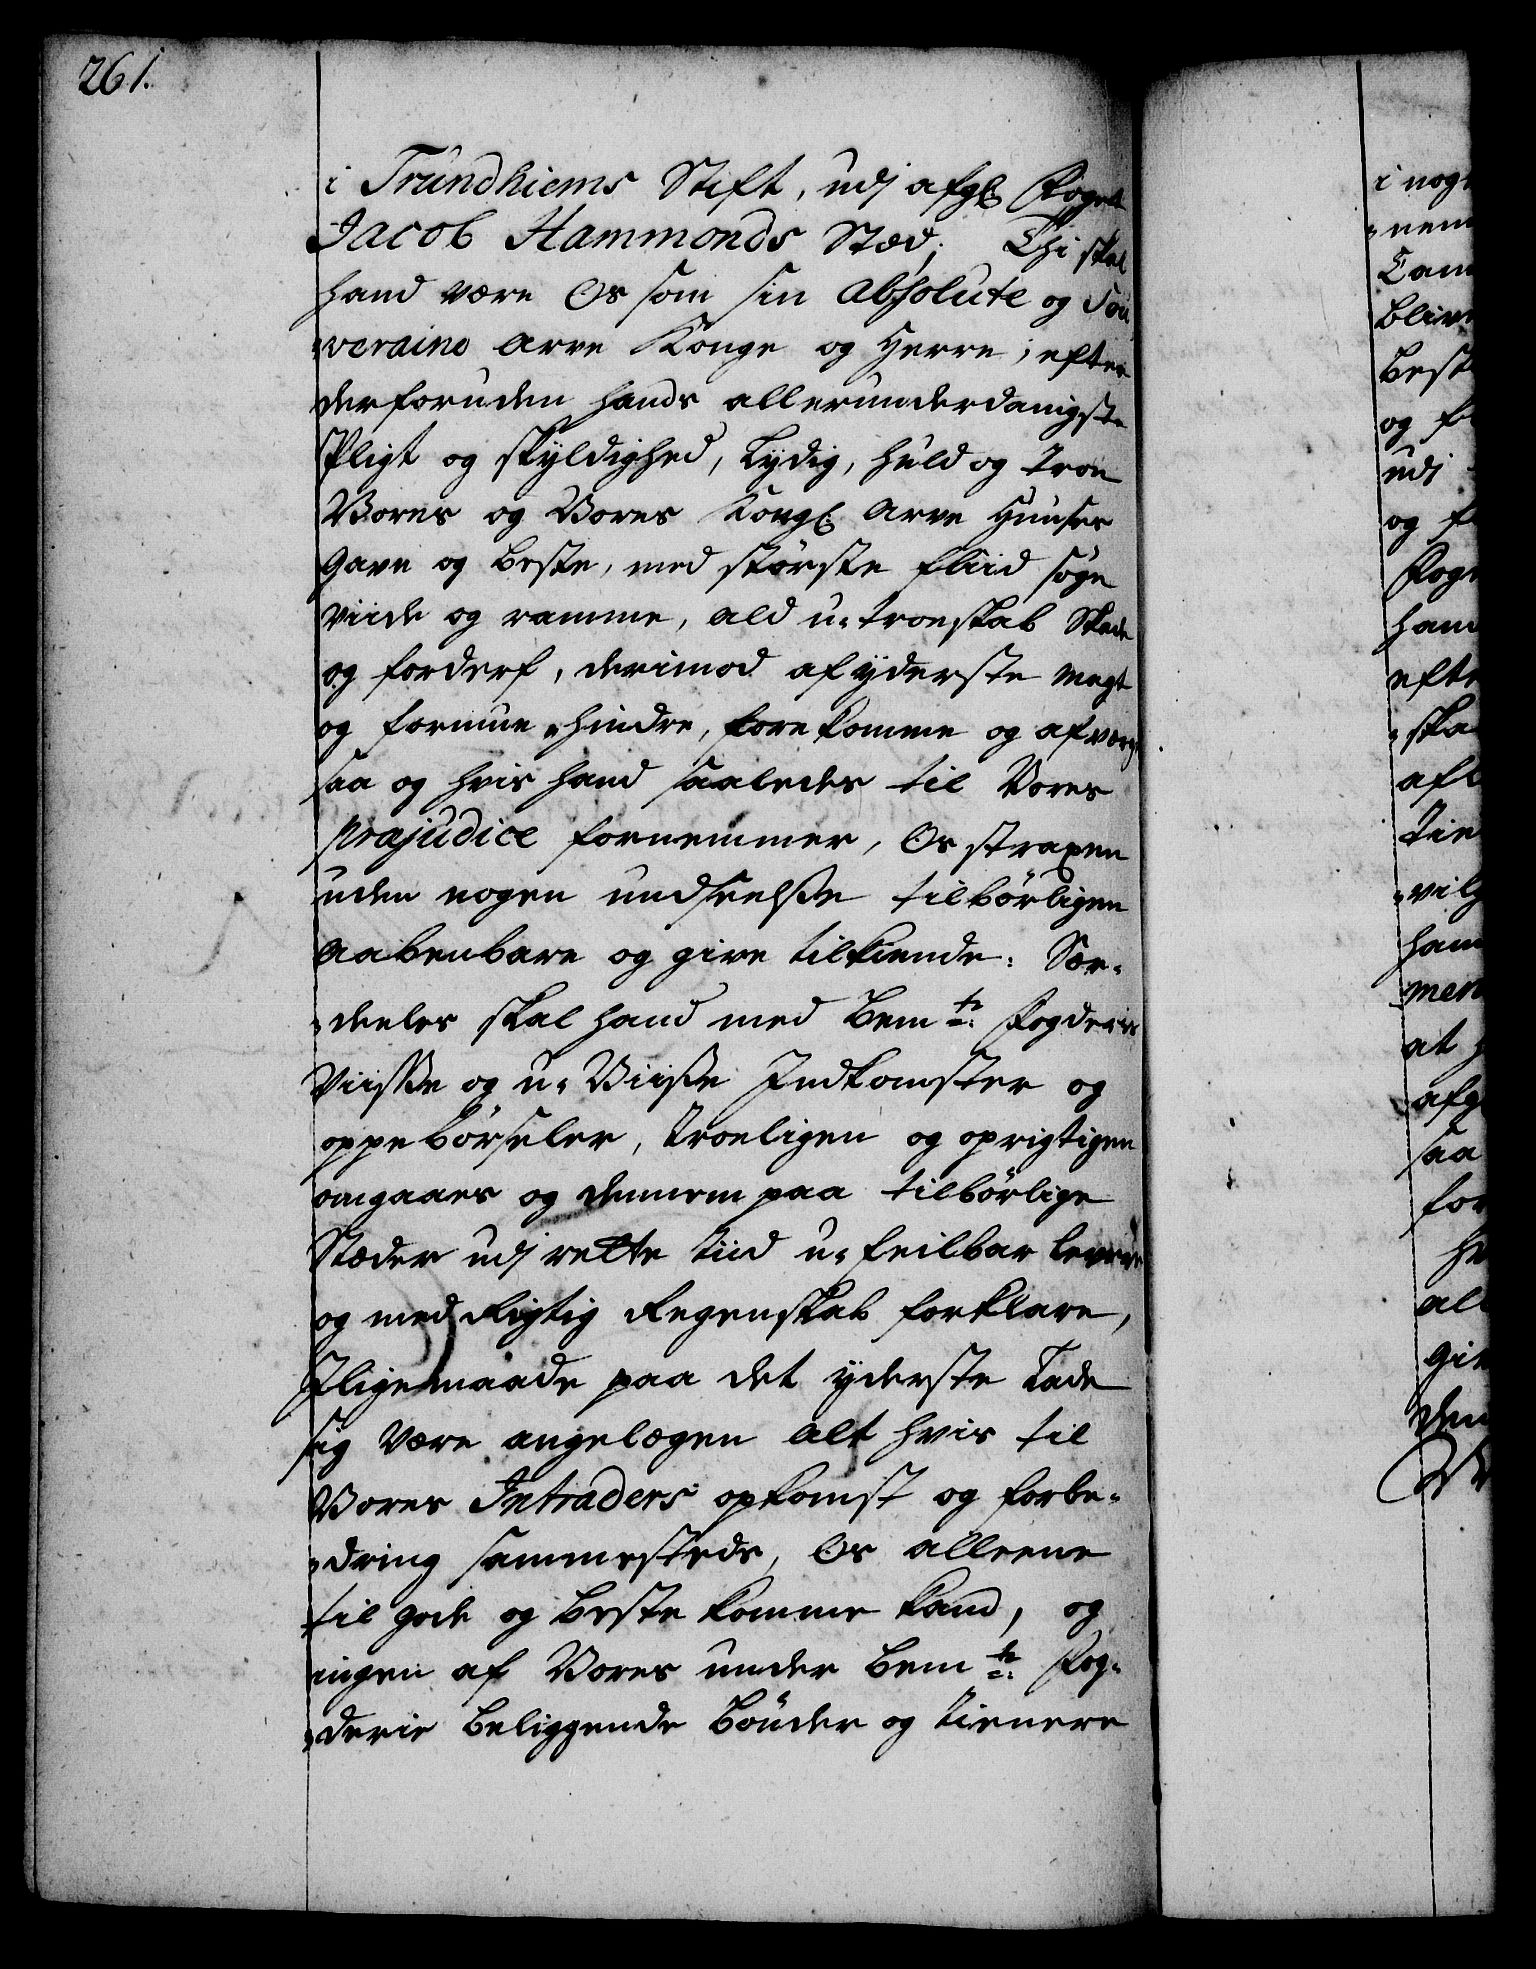 261.
i Trundhiems Stift, udj afg: Foget
Jacob Hammonds Stæd; Thi skal
hand være Os som sin Absolute og Sou
-veraine Arve Konge og Herre; efter
derforuden hands allerunderdanigste
Pligt og skyldighed, Lydig, Huld og troe
Vores og Vores Kongl: Arve Huuses
Gavn og beste, med største fliid søge
viide og ramme, ald u-troeskab Skade
og forderf, derimod af yderste magt
og formue hindre, forekomme og afverge
saa og hvis hand saaledes til Vores
præjudice fornemmer, Os straxen
uden nogen undseelsse tilbørligen
aabenbare og give tilkiende: Sær-
-deeles skal hand med Bemte: Fogderies
Viisse og u-Viisse Indkomster og
oppebørseler, troeligen og oprigtigen
omgaaes og dennem paa tilbørlige
Stæder udj rette tiid u-feilbar levere
og med Rigtig Regenskab forklare,
Sligemaade paa det yderste Lade
sig være angelægen alt hvis til
Vores Intraders opkomst og forbe-
-dring sammesteds, Os alleene
til gode og beste komme kand, og
ingen af Vores under bemte: Fog-
-derie beliggende bønder og tienere
i nog
-nem
Cam
bliv
beste
og f
udj
og f
Foge
hand
efte
-ska
afl
tien
-vilg
hand
men
at h
afg
saa
for
H
all
giv
den